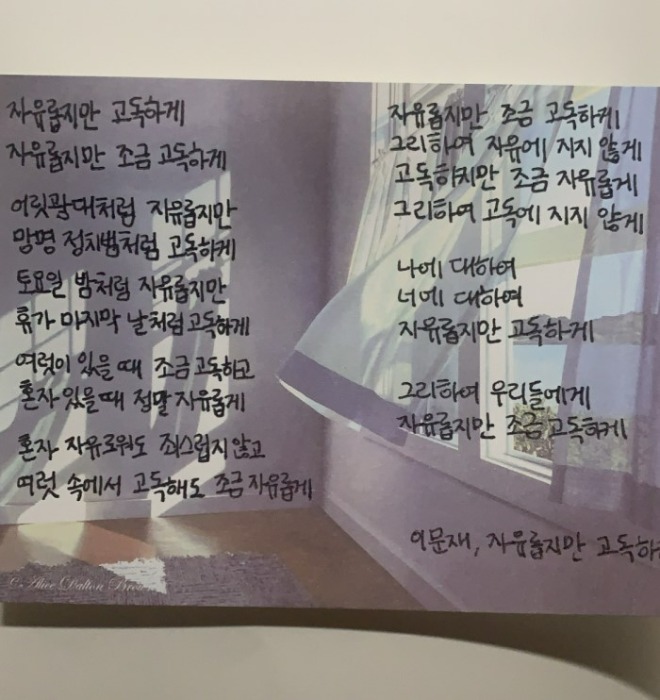 자유롭지만 고독하게
자유롭지만 조금 고독하게
어릿광대처럼 자유롭지만
망명 정치범처럼 고독하게
토요일 밤처럼 자유롭지만
휴가 마지막 날처럼 고독하게
여럿이 있을 때 조금 고독하고
혼자 있을 때 정말 자유롭게
혼자 자유로워도 죄스럽지 않고
여럿 속에서 고독해도 조금 자유롭게
자유롭지만 조금 고독하게
그리하여 자유에 지지 않게
고독하지만 조금 자유롭게
그리하여 고독에 지지 않게
나에 대하여
너에 대하여
자유롭지만 고독하게
그리하여 우리들에게
자유롭지만 조금 고독하게
이문재, 자유롭지만 고독하
© Alice Dalton Brown